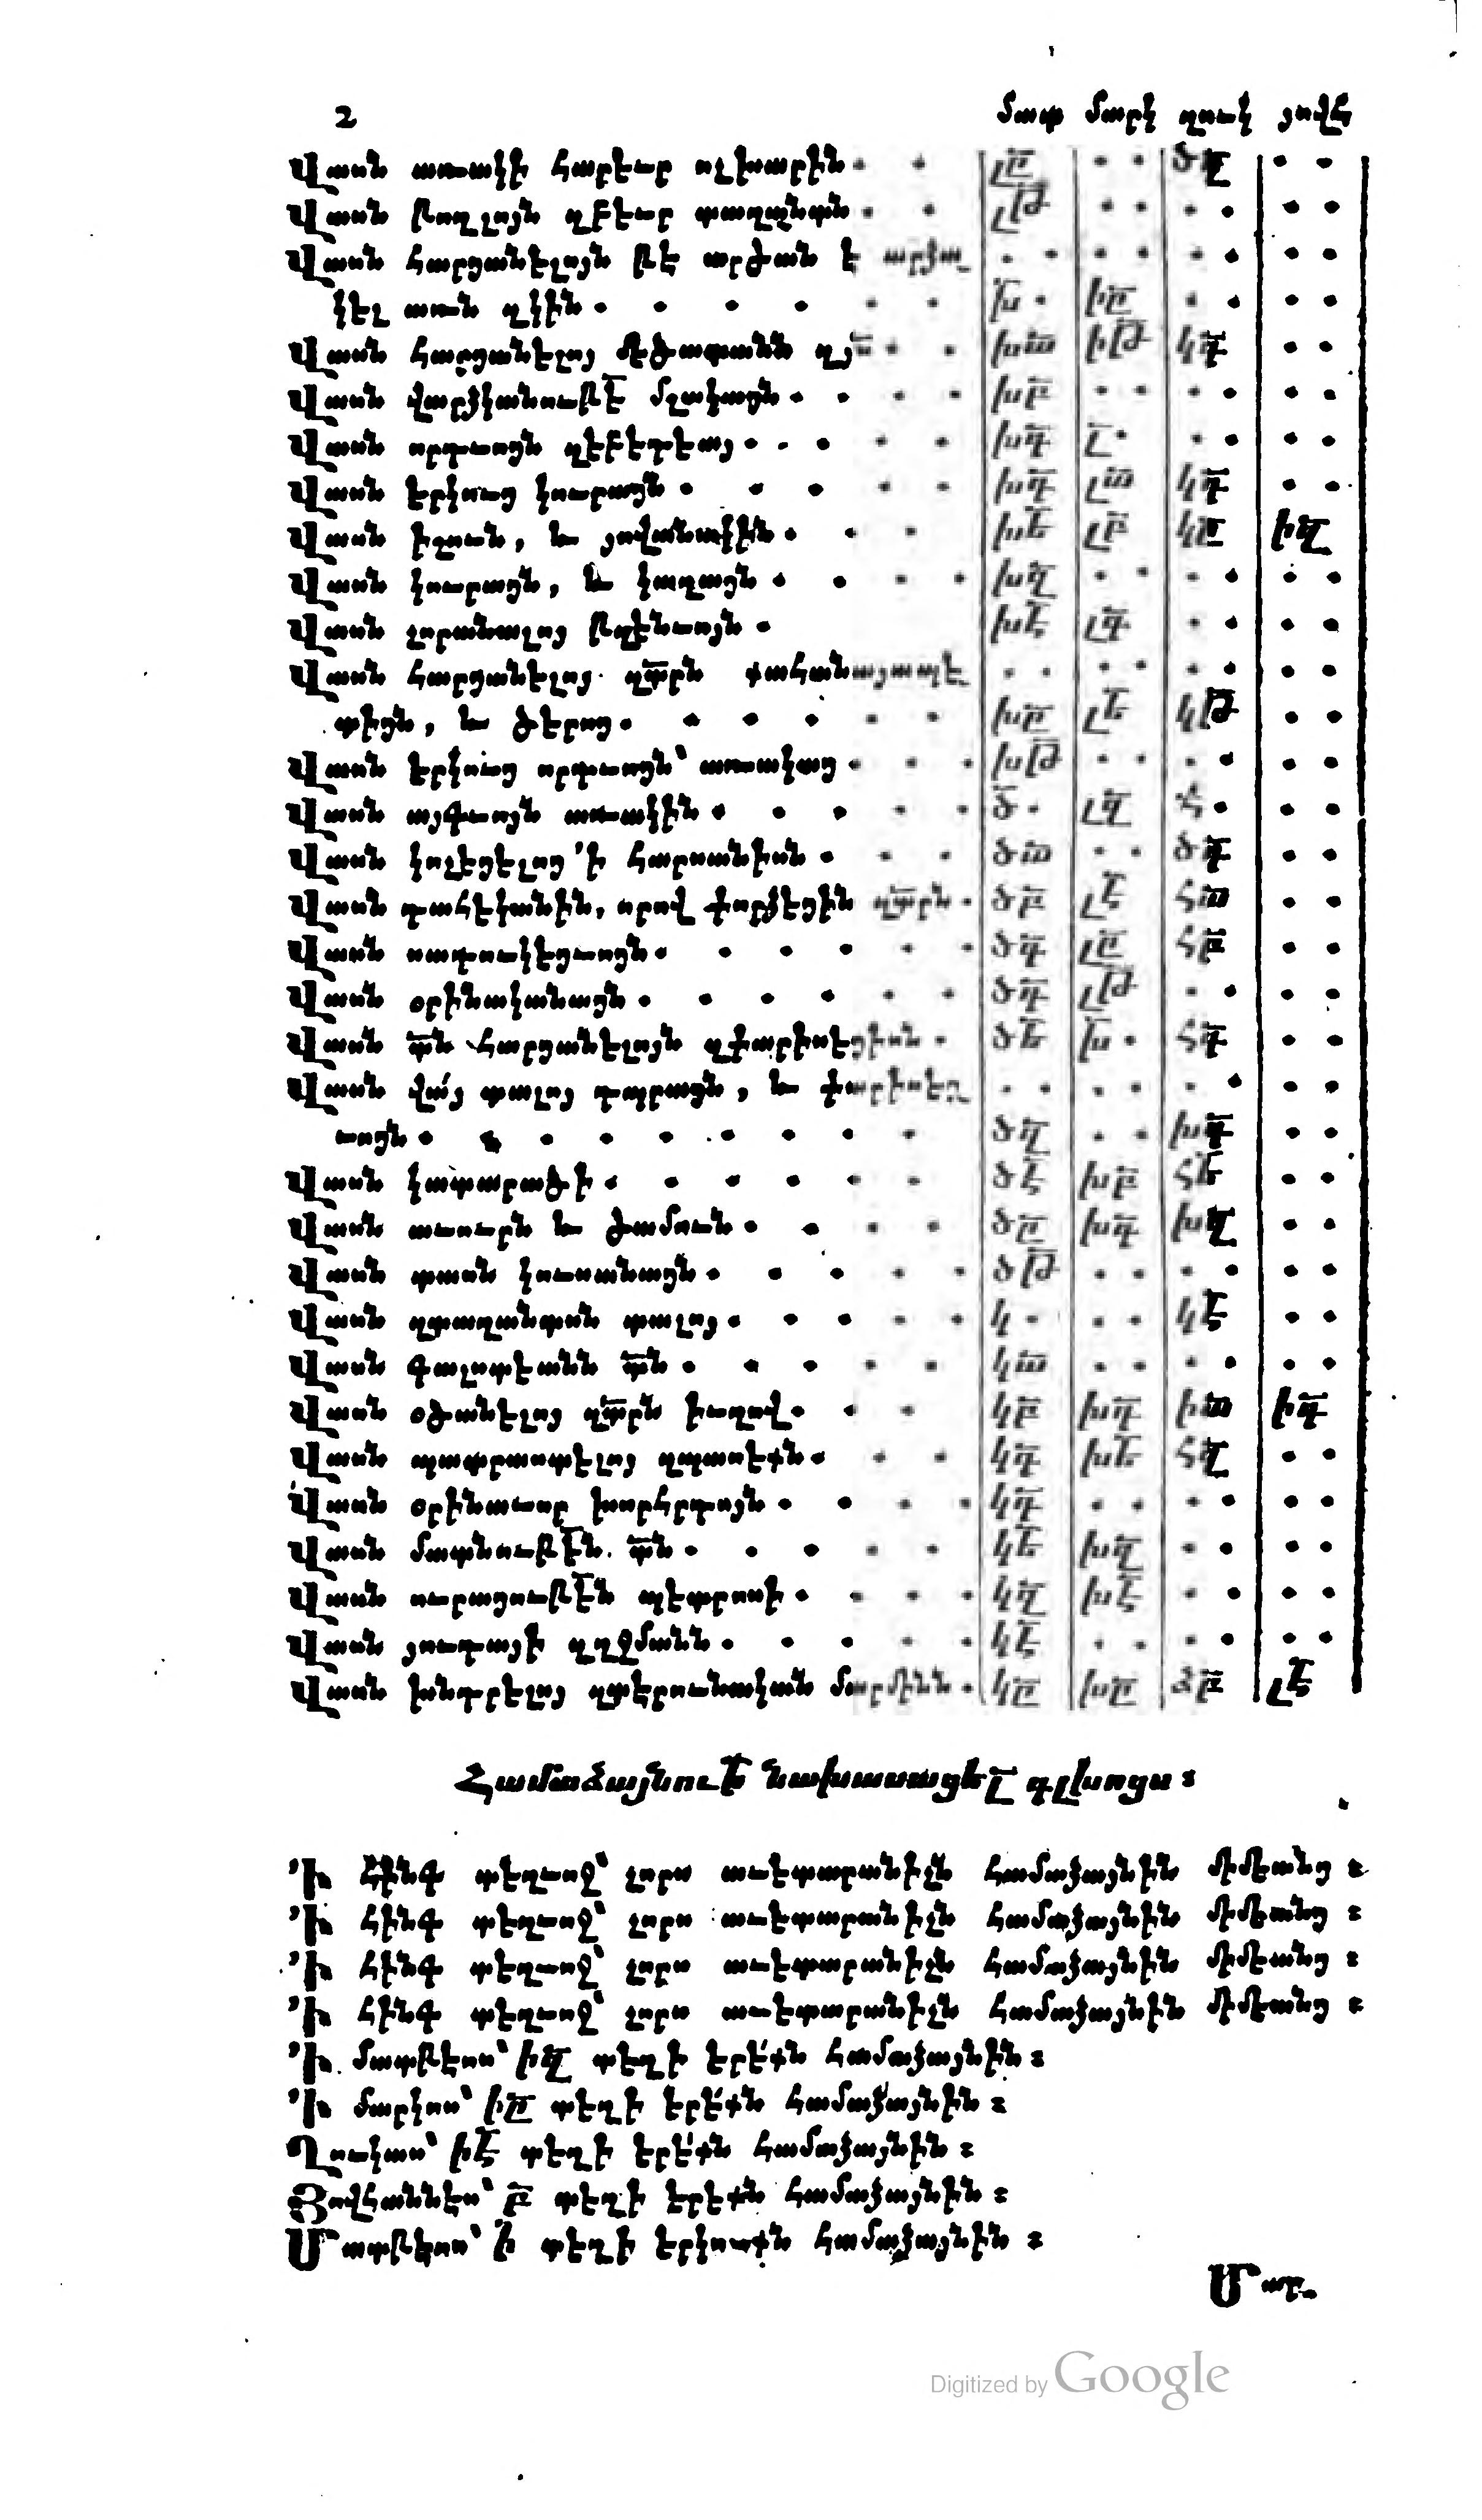 2 մատ մարկ ղուկ յովհ
Վասն առակի հարէւր ոչխարին . . լը . . ծզ . .
Վասն թողլոյն զբէւր տաղանտն . . լթ . . . . . .
Վասն հարցանելոյն թէ արժան է արձա_ . . . . . . . .
կել առն զկին . . . . . . խ . իը . . . .
Վասն հարցանելոյ մեծատանն զյս . . խա իթ կդ . .
Վասն վարձկանութե մշակացն . . . . խբ . . . . . .
Վասն որդւոցն զեբեդեայ . . . . . խգ լ . . . . .
Վասն երկուց կուրացն . . . . . խդ լա կդ . .
Վասն իշուն, և յովանակին . . . խե լբ կը իզ
Վասն կուրացն, և կաղացն . . . . խզ . . . . . .
Վասն չորանալոյ թզենւոյն . խէ լգ . . . .
Վասն հարցանելոյ զտրն քահանայապե_ . . . . . . . .
տիցն, և ծերոց . . . . . . խը լե կթ . .
Վասն երկուց որդւոցն՝ առակաց . . . խթ . . . . . .
Վասն այգւոյն առակին . . . . . ծ . լզ Հ . . .
Վասն կոչեցելոց ՚ի հարսանիսն . . . ծա . . ծգ . .
Վասն դահեկանին, որով փորձեցին զտրն . ծբ լէ հա . .
Վասն սադուկեցւոցն . . . . . . ծգ լը հբ . .
Վասն օրինականացն . . . . . . ծդ լթ . . . .
Վասն տն հարցանելոյն զփարիսեցիսն . ծե խ . հգ . .
Վասն վա՛յ տալոյ դպրացն, և փարիսեց_ . . . . . . . .
ւոցն . . . . . . . . . ծզ . . խգ . .
Վասն կատարածի . . . . . . ծէ խբ հե . .
Վասն աւուրն և ժամուն . . . . ծը խգ խզ . .
Վասն տասն կուսանացն . . . . . ծթ . . . . . .
Վասն զտաղանտսն տալոյ . . . . . կ . . . կէ . .
Վասն գալստեանն տն . . . . . կա . . . . . .
Վասն օծանելոյ զտրն իւղով . . . կբ խդ իա իգ
Վասն պատրաստելոյ զպասեքն . . . կգ խե հզ . .
Վասն օրինաւոր խորհրդոյն . . . . կդ . . . . . .
Վասն մատնութեն տն . . . . . կե խզ . . . .
Վասն ուրացութեն պետրոսի . . . . կզ խէ . . . .
Վասն յուդայի զղջմանն . . . . . կէ . . . . . .
Վասն խնդրելոյ զտերունական մարմինն . կը խը ձբ լէ
Համաձայնութի նախասացել գլխոցս ։
՚Ի հինգ տեղւոջ՝ չորս աւետարանիչն համաձայնին միմեանց ։
՚Ի հինգ տեղւոջ՝ չորս աւետարանիչն համաձայնին միմեանց ։
՚Ի հինգ տեղւոջ՝ չորս աւետարանիչն համաձայնին միմեանց ։
՚Ի հինգ տեղւոջ՝ չորս աւետարանիչն համաձայնին միմեանց ։
՚Ի մատթեոս՝ իզ տեղի երե՛քն համաձայնին ։
՚Ի մարկոս՝ իը տեղի երե՛քն համաձայնին ։
Ղուկաս՝ իէ տեղի երե՛քն համաձայնին ։
Յովհաննես՝ բ տեղի երեքն համաձայնին ։
Մատթեոս՝ ի տեղի երկուքն համաձայնին ։
Մար_
Digitized by Google